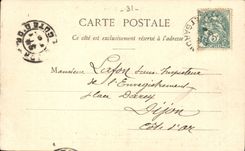 -31-
CARTE POSTALE
Ce côté est exclusivement réservé à l'adresse
Monsieur Lafon Sous-Inspecteur
de l'Enregistrement
place Darcy
Dijon
Côte d'or